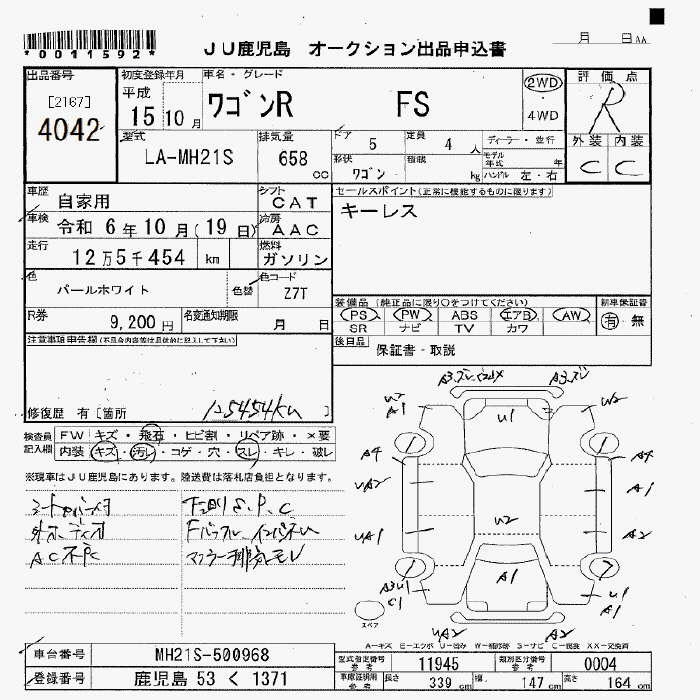 *0011592*
JU鹿児島 オークション出品申込書
月 日 AA
出品番号
[2167]
4042
初度登録年月
平成
15 10 月
車名・グレード
ワゴンR FS
2WD
4WD
評価点
R
外装 内装
C C
型式
LA-MH21S
排気量
658 CC
ドア 5
定員 4 人
形状 ワゴン
積載 kg
ディーラー・並行
モデル年式 年
ハンドル 左・右
車歴 自家用
シフト CAT
車検 令和 6年10月(19日)
冷房 AAC
走行 12万5千454 km
燃料 ガソリン
色 パールホワイト
色替
色コード Z7T
R券 9,200円
名変通知期限 月 日
セールスポイント(正常に機能するものに限ります)
キーレス
装備品 (純正品に限り○をつけてください)
PS PW ABS エアB AW
SR ナビ TV カワ
新車保証書
有・無
後日品 保証書・取説
注意事項申告欄(不具合内容等は具体的に記入して下さい)
修復歴 有[箇所 125454km ]
検査員記入欄
FW キズ・飛石・ヒビ割・リペア跡・×要
内装 キズ・汚レ・コゲ・穴・スレ・キレ・破レ
※現車はJU鹿児島にあります。陸送費は落札店負担となります。
AC不良
下廻りS.P.C
A1
U1
W2
A4
A4
UA2
A1
U2
UA1
A2
A1
C1
U1
A1
UA2
A2
スペア
A-キズ E-エクボ U-凹み W-補修跡 S-サビ C-腐食 XX-交換済
車台番号 MH21S-500968
登録番号 鹿児島 53 く 1371
型式指定番号 参考 11945
類別区分番号 参考 0004
車庫証明用 参考 長さ 339 cm 幅 147 cm 高さ 164 cm